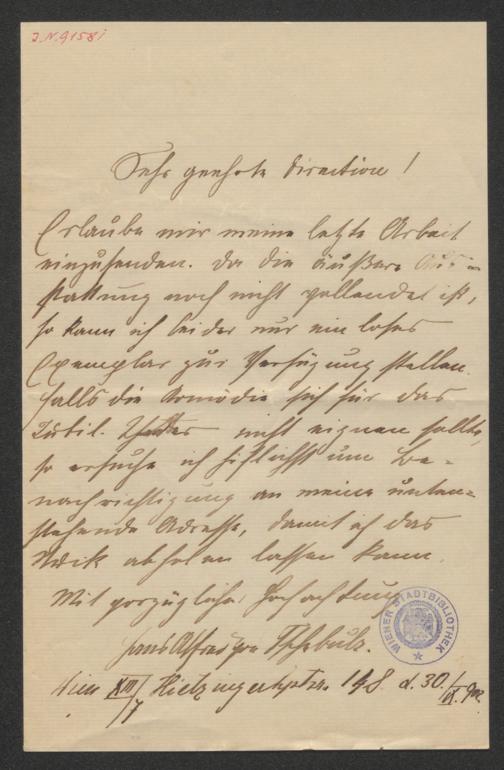 J.N. 9158i
Sehr geehrte Direction!
Erlaube mir meine letzte Arbeit
einzusenden. Da die äußere Aus-
stattung noch nicht vollendet ist,
so kann ich leider nur ein loses
Exemplar zur Verfügung stellen.
Falls die Komödie sich für das
Jubil. Theater nicht eignen sollte,
so ersuche ich höflichst um Be-
nachrichtigung an meine unten-
stehende Adresse, damit ich das
Werk abholen lassen kann.
Mit vorzüglicher Hochachtung
Hans Alfred von
Wien XIII/7 Hietzingerhptstr. 148. d. 30./IX. 902
WIENER STADTBIBLIOTHEK